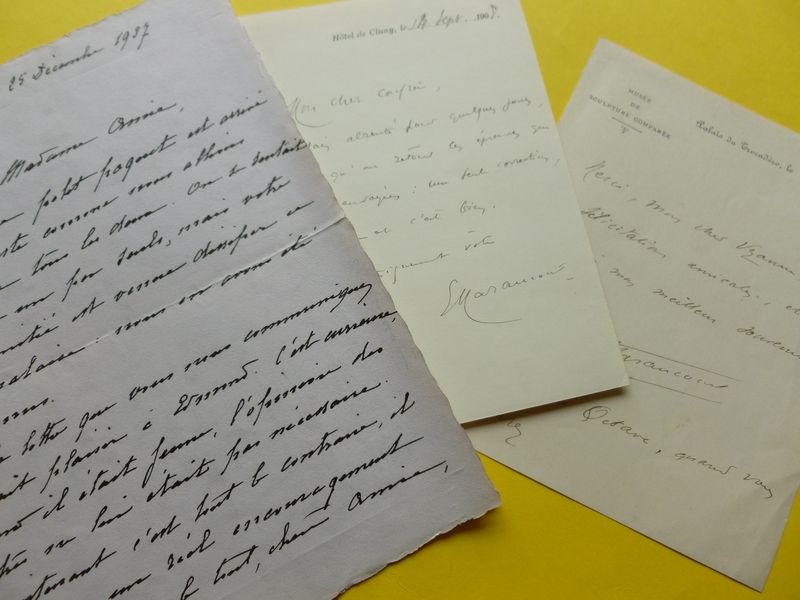 25 Décembre 1937
Madame Amie,
petit paquet est arrivé
comme nous allions
tous les deux. On se sentait
un peu seuls, mais votre
est venue dissiper ce
: nous en avons été
que vous nous communiquez
plaisir à Edmond. C'est curieux,
il était jeune, l'opinion des
ne lui était pas nécessaire.
c'est tout le contraire, il
un réel encouragement
le tout, chère Amie,
Hôtel de Cluny, le 14 Sept. 190
Mon cher confrère,
absenté pour quelques jours,
qu'au retour les épreuves que
envoyées : un seul correction,
et c'est bien.
votre
Haraucourt
MUSÉE
DE
SCULPTURE COMPARÉE
Palais du Trocadéro, le
Merci, mon cher
félicitations amicales, et
mon meilleur souvenir
Haraucourt
Octave, quand vous